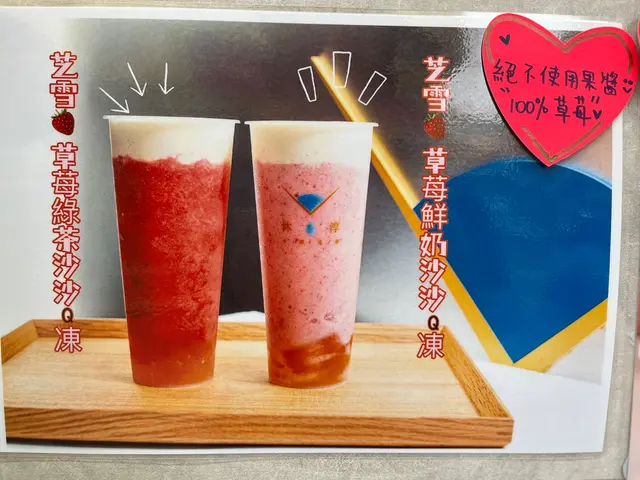 芝雪🍓草莓綠茶沙沙Q凍
芝雪🍓草莓鮮奶沙沙Q凍
絕不使用果醬
"100%草莓"